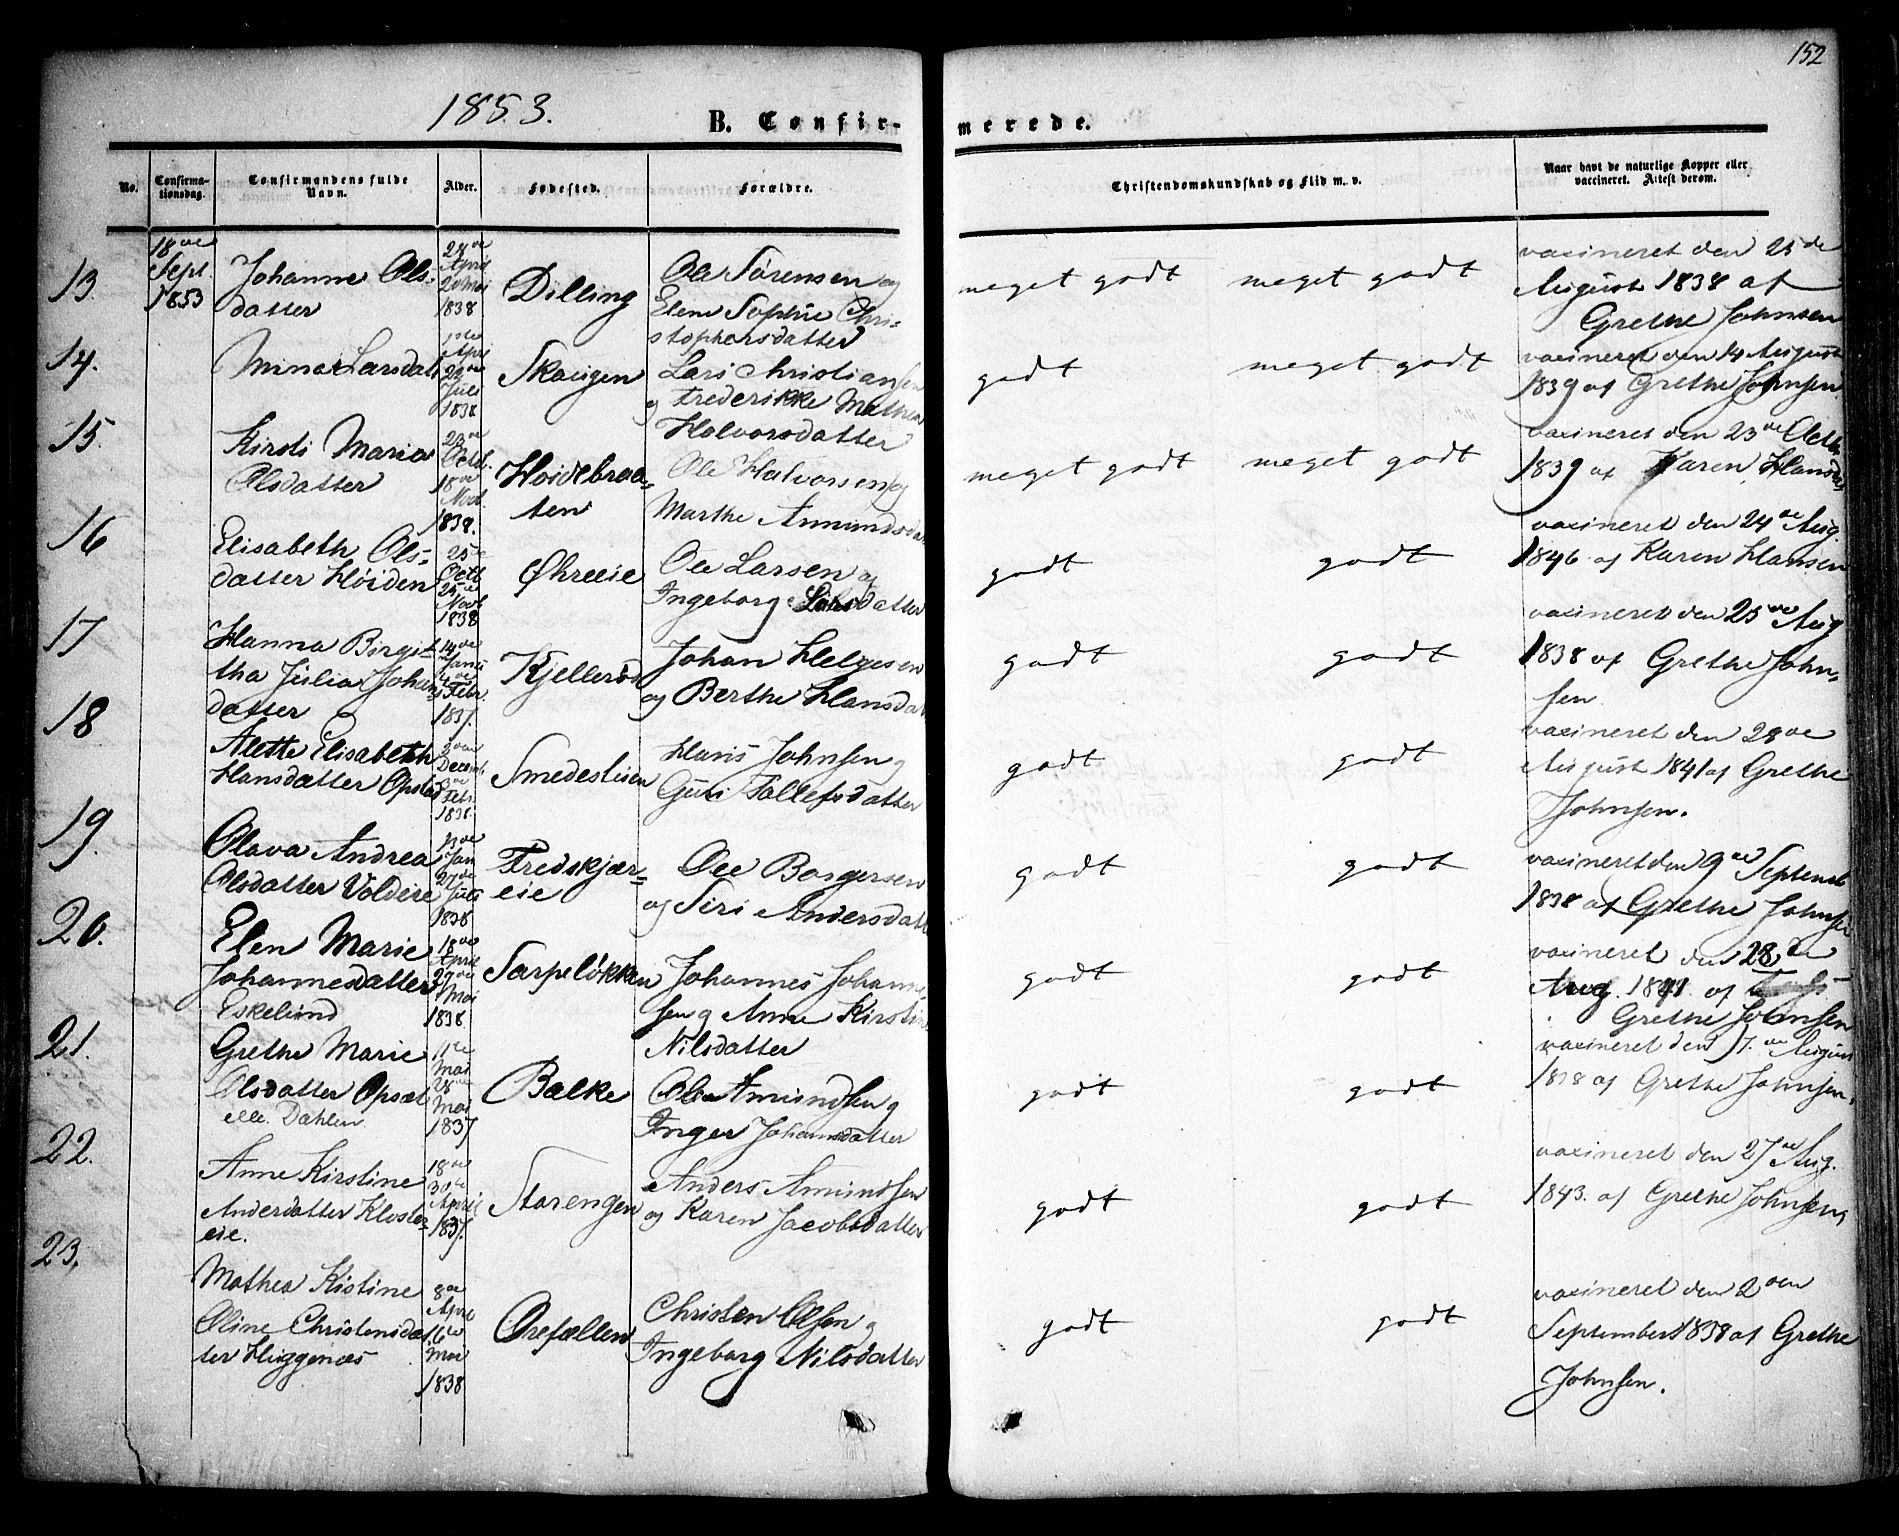 152
1853.
B. Confir-
merede.
No.
Confirma-
tionsdag.
Confirmandens fulde
Navn.
Alder.
Fødested.
Forældre.
Christendomskundskab og Flid m. v.
Naar havt de naturlige Kopper eller
vaccineret. Attest derom.
13.
18de
Sept.
1853
Johanne Ols-
datter
April
20 Mai
1838
Dilling
Ole Sørensen og
Elene Sophie Chri-
stophersdatter
meget godt
meget godt
vaxineret den 25de
August 1838 af
Grethe Johnsen
14.
Juli
1838
Skougen
Lars Christiansen
og Frederikke Mathea
Halvorsdatter
godt
meget godt
vaxineret den 14 August
1839 af Grethe Johnsen
15.
Kirsti Maria
Olsdatter
Octb.
18de
Novb.
1838.
Hoidebraa-
ten
Ole Halvorsen og
Marthe Amundsdat
meget godt
meget godt
vaxineret den 23de Octb
1839 af Karen Hansdat
16
Elisabeth Ols-
datter Høiden
25de
Octb
25de
Novb
1838
Øhreeie
Ole Larsen og
Ingeborg Larsdatter
godt
godt
vaxineret den 24de Aug.
1846 af Karen Hansen
17
Hanna Birgit-
tha Julia Johans-
datter
14de
Janu
Febr.
1837.
Kjellerød
Johan Helgesen
og Berthe Hansdat
godt
godt
vaxineret den 25de Aug
1838 af Grethe John-
sen
18
Alette Elisabeth
Hansdatter Opstad
Decemb
Febr.
1838.
Smedestuen
Hans Johnsen og
Guri Tollefsdatter
godt
godt
vaxineret den 28de
August 1841 af Grethe
Johnsen.
19.
Olava Andrea
Olsdatter Voldeie
Jan
27de
Juli
1838
Fredskjær-
eie
Ole Borgersen
og Siri Andersdatt
godt
godt
vaxineret den 9de Septemb
1838 af Grethe Johnsen
20.
Elen Marie
Johannesdatter
Eskelund
18de
April
27de
Mai
1838
Sarpeløkken
Johannes Johanne-
sen og Anne Kirstine
Nilsdatter
godt
godt
vaxineret den 28de
Aug. 1841 af
Grethe Johnsen
21.
Grethe Marie
Olsdatter Opsat
elle. Dahlen
11te
Mai
28de
Mai
1837
Bælke
Ole Amundsen og
Inger Johannsdatter
godt
godt
vaxineret den 17. de August
1838 af Grethe Johnsen.
22.
Anne Kirstine
Andersdatter Kloster-
eie.
18de
30te
April
1837.
Storengen
Anders Amundsen
og Karen Jacobsdatter
godt
godt
vaxineret den 27de Aug.
1843. af Grethe Johnsen
23.
Mathea Kistine
Oline Christensdat
ter Huggenæs
8de
April
16de
Mai
1838
Ørefællen
Christen Olsen og
Ingeborg Nilsdatter
godt
godt
vaxineret den 2den
September 1838 af Grethe
Johnsen.